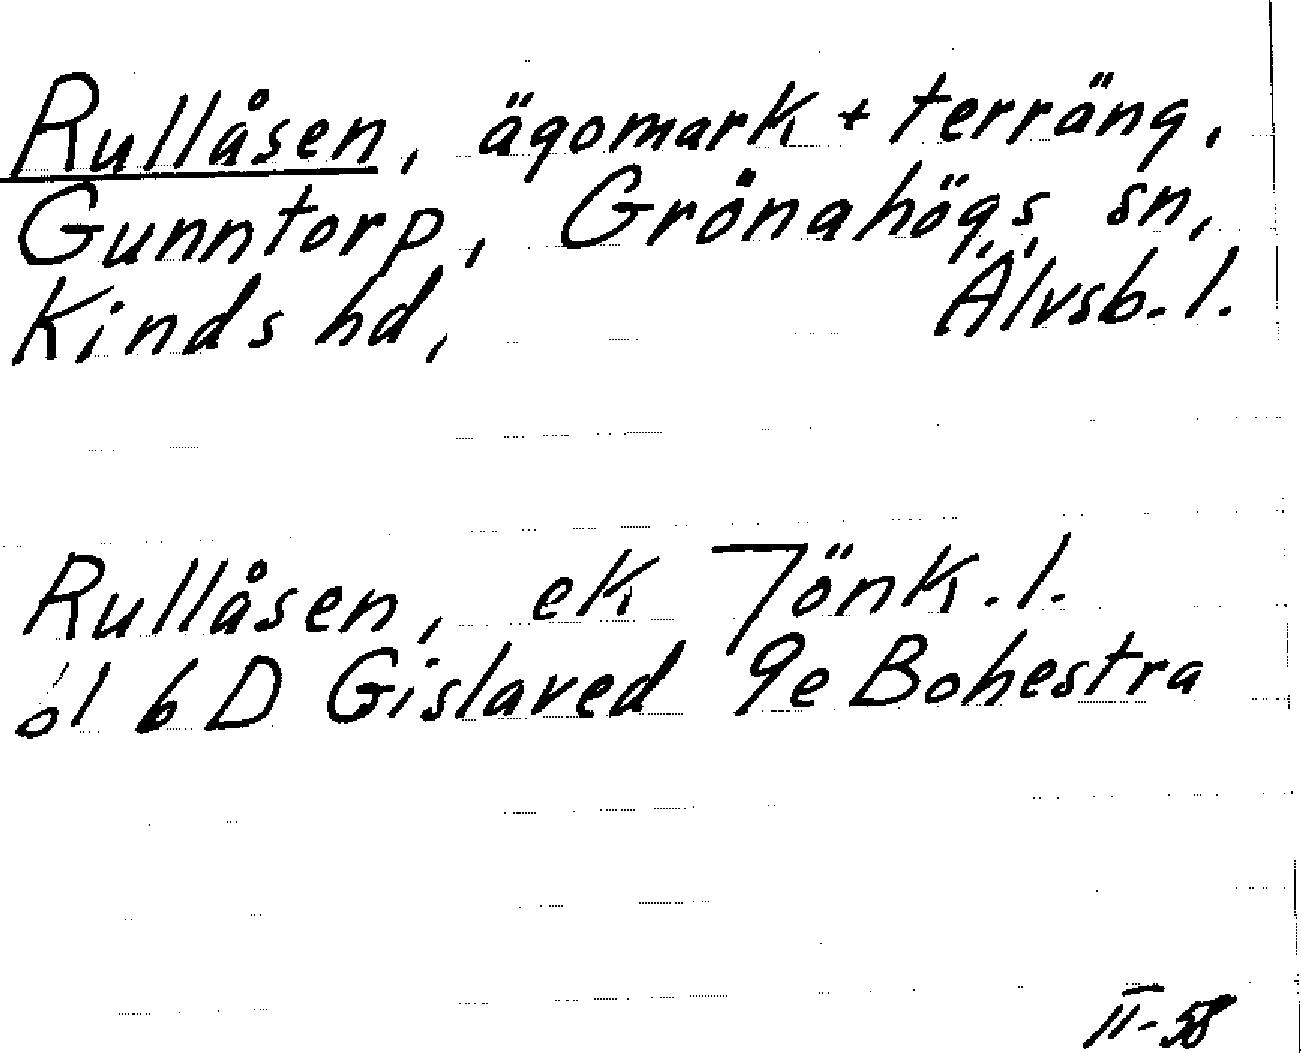 Rullåsen, ägomark + terräng,
Gunntorp, Grönahögs sn,
Kinds hd, Älvsb. l.
Rullåsen, ek Jönk. l.
öl 6 D Gislaved 9e Bohestra
II-58